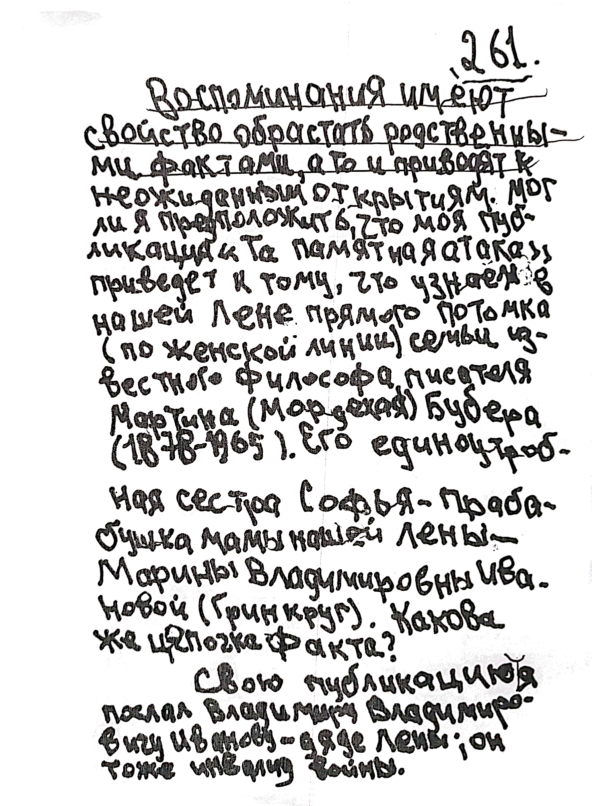 261.
Воспоминания имеют
свойство обрастать родственны-
ми фактами, а то и приводят к
неожиданным открытиям. Мог
ли я предположить, что моя пуб-
ликация «Та памятная атака»
приведет к тому, что узнаем в
нашей Лене прямого потомка
(по женской линии) семьи из-
вестного философа, писателя
Мартина (Мордехая) Бубера
(1878-1965). Его единоутроб-
ная сестра Софья - праба-
бушка мамы нашей Лены -
Марины Владимировны Ива-
новой (Гринкруг). Какова
же цепочка факта?
Свою публикацию я
послал Владимиру Владимиро-
вичу Иванову - дяде Лены; он
тоже инвалид войны.